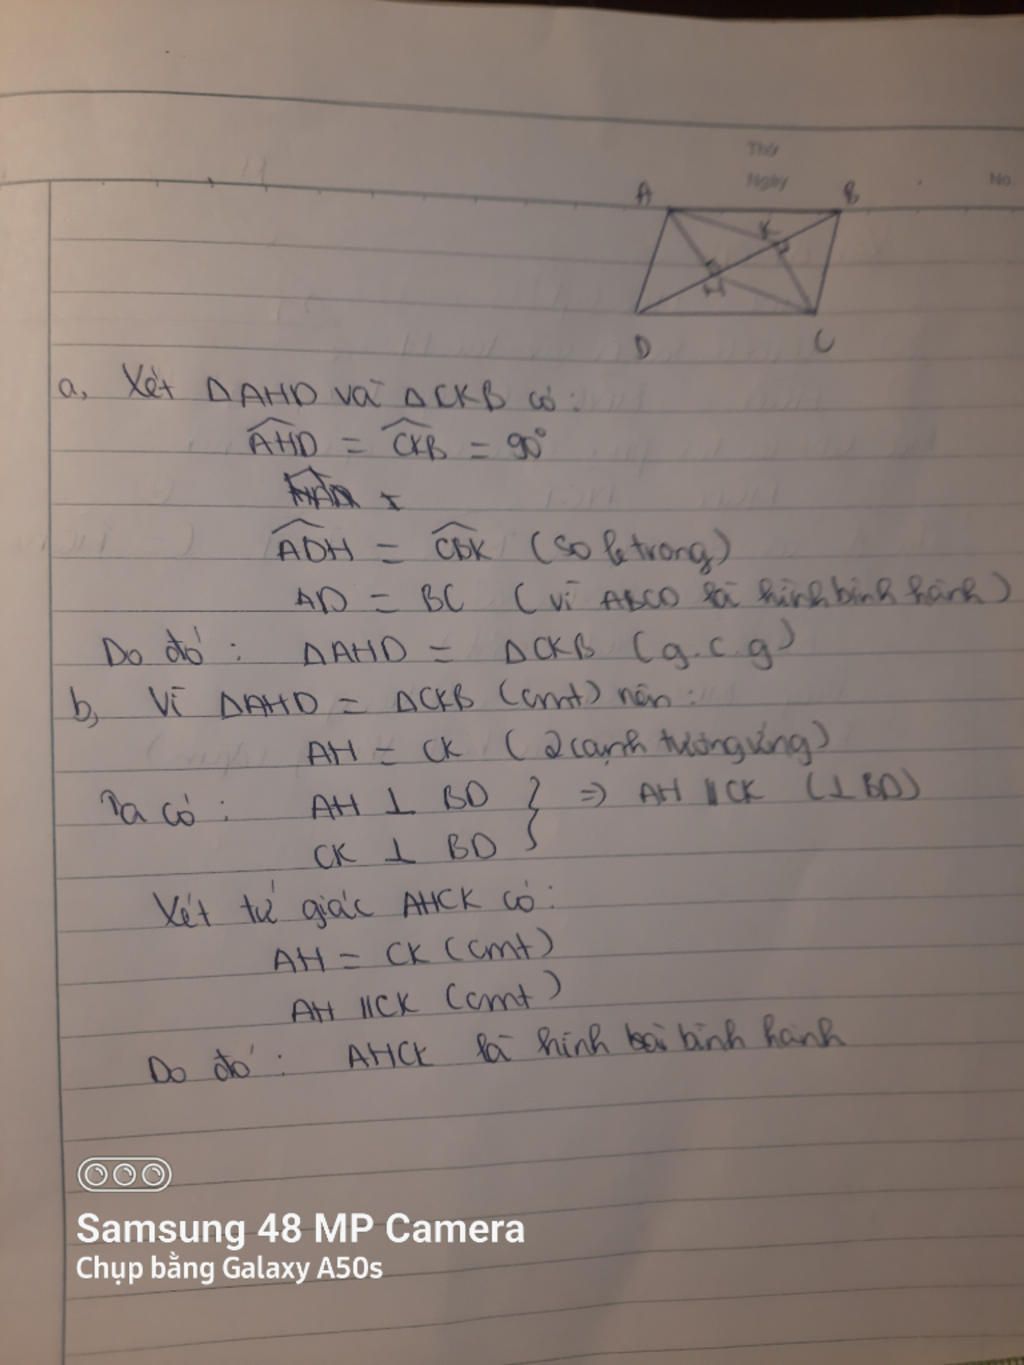 Thứ
Ngày
No.
A
B
K
H
D
C
a, Xét ΔAHD và ΔCKB có:
AHD = CKB = 90°
ADH = CBK (so le trong)
AD = BC (vì ABCD là hình bình hành)
Do đó: ΔAHD = ΔCKB (g.c.g)
b, Vì ΔAHD = ΔCKB (cmt) nên:
AH = CK (2 cạnh tương ứng)
Ta có: AH ⊥ BD } => AH // CK (⊥ BD)
CK ⊥ BD
Xét tứ giác AHCK có:
AH = CK (cmt)
AH // CK (cmt)
Do đó: AHCK là hình bình hành
Samsung 48 MP Camera
Chụp bằng Galaxy A50s